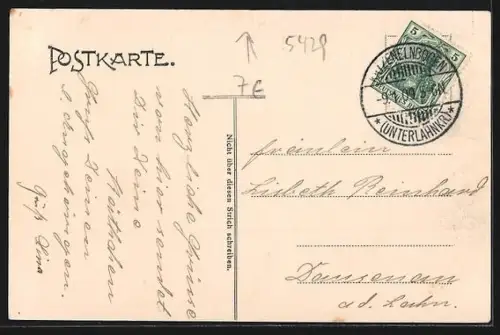 POSTKARTE.
5429
7€
5
5
KATZENELNBOGEN
(UNTERLAHNKR.)
Nicht über diesen Strich schreiben.
Herzliche Grüsse
von hier sendet
Dir Deine
Käthchen
Gruß Deinen
l. Angehörigen.
Gruß Lina
Fräulein
Lisbeth Reinhard
Dausenau
a.d. Lahn.